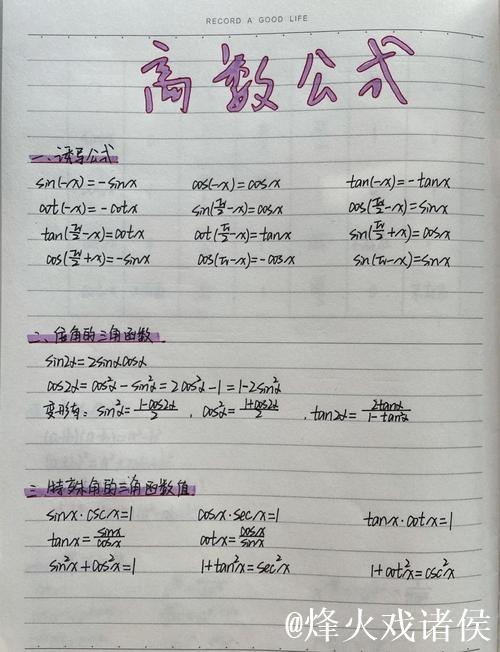 RECORD A GOOD LIFE
高数公式
一、诱导公式
sin(-x)=-sinx cos(-x)=cosx tan(-x)=-tanx
cot(-x)=-cotx sin(π/2-x)=cosx cos(π/2-x)=sinx
tan(π/2-x)=cotx cot(π/2-x)=tanx sin(π/2+x)=cosx
cos(π/2+x)=-sinx cos(π-x)=-cosx sin(π-x)=sinx
二、倍角的三角函数
sin2α=2sinαcosα
cos2α=cos²α-sin²α=2cos²α-1=1-2sin²α
变形有：sin²α=(1-cos2α)/2，cos²α=(1+cos2α)/2，tan2α=2tanα/(1-tan²α)
三、特殊角的三角函数值
sinx·cscx=1 cosx·secx=1 tanx·cotx=1
tanx=sinx/cosx cotx=cosx/sinx
sin²x+cos²x=1 1+tan²x=sec²x 1+cot²x=csc²x
@烽火戏诸侯